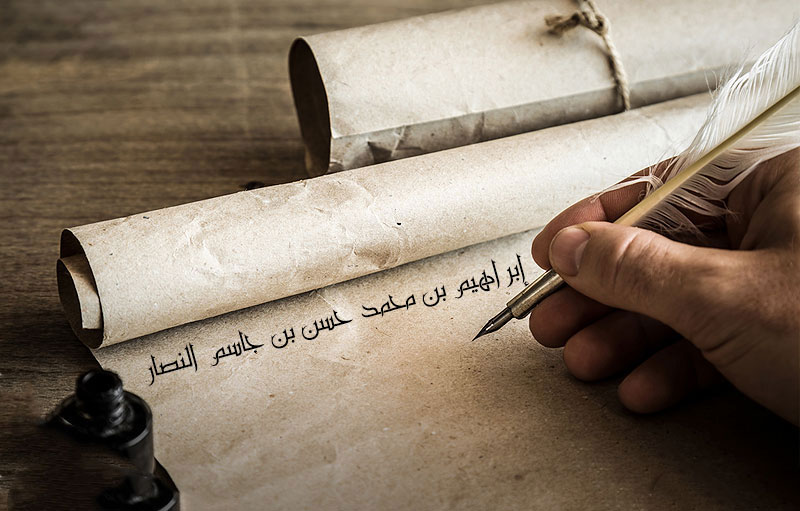 إبراهيم بن محمد حسن بن جاسم النصار